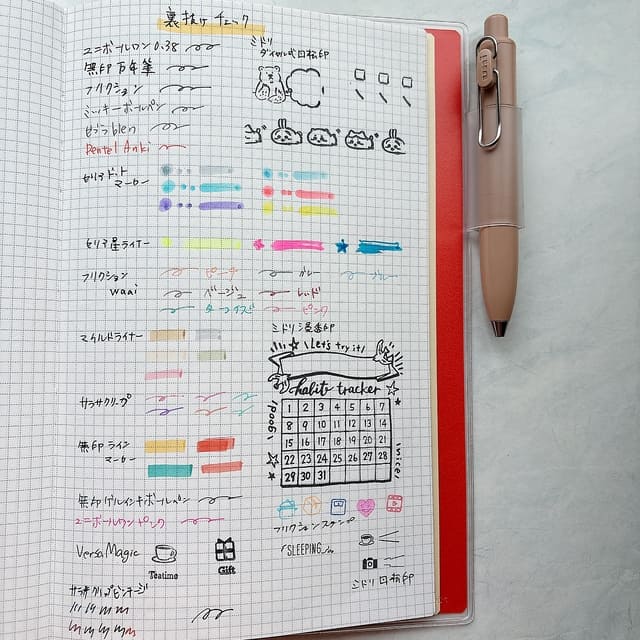 裏抜けチェック
ユニボールワン0.38
無印万年筆
フリクション
ミッキーボールペン
ゼブラblen
Pentel Anki
ミドリ
ダイヤル式回転印
セリアドット
マーカー
セリア星ライナー
フリクション
waai
ピーチ
グレー
ブルー
ベージュ
レッド
ターコイズ
ピンク
マイルドライナー
ミドリ浸透印
Let's try it!
habit tracker
1 2 3 4 5 6 7
8 9 10 11 12 13 14
15 16 17 18 19 20 21
22 23 24 25 26 27 28
29 30 31
good!
nice!
サラサクリップ
無印ライン
マーカー
無印ゲルインキボールペン
ユニボールワンピンク
フリクションスタンプ
VersaMagic
Teatime
Gift
SLEEPING
ミドリ回転印
サラサクリップビンテージ